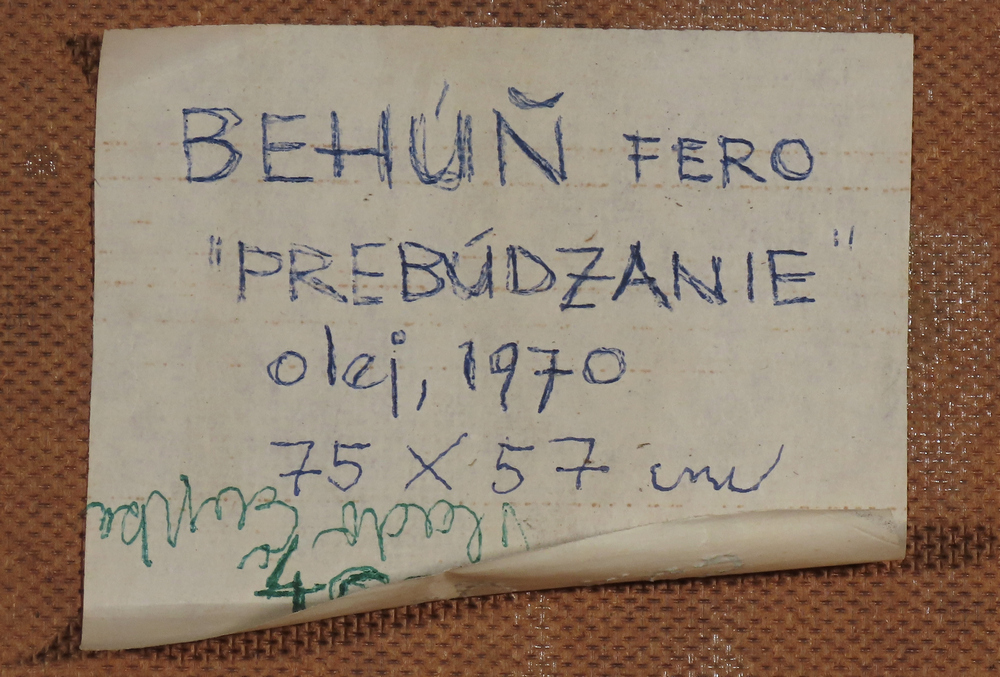 BEHÚŇ FERO
"PREBÚDZANIE"
olej, 1970
75 X 57 cm